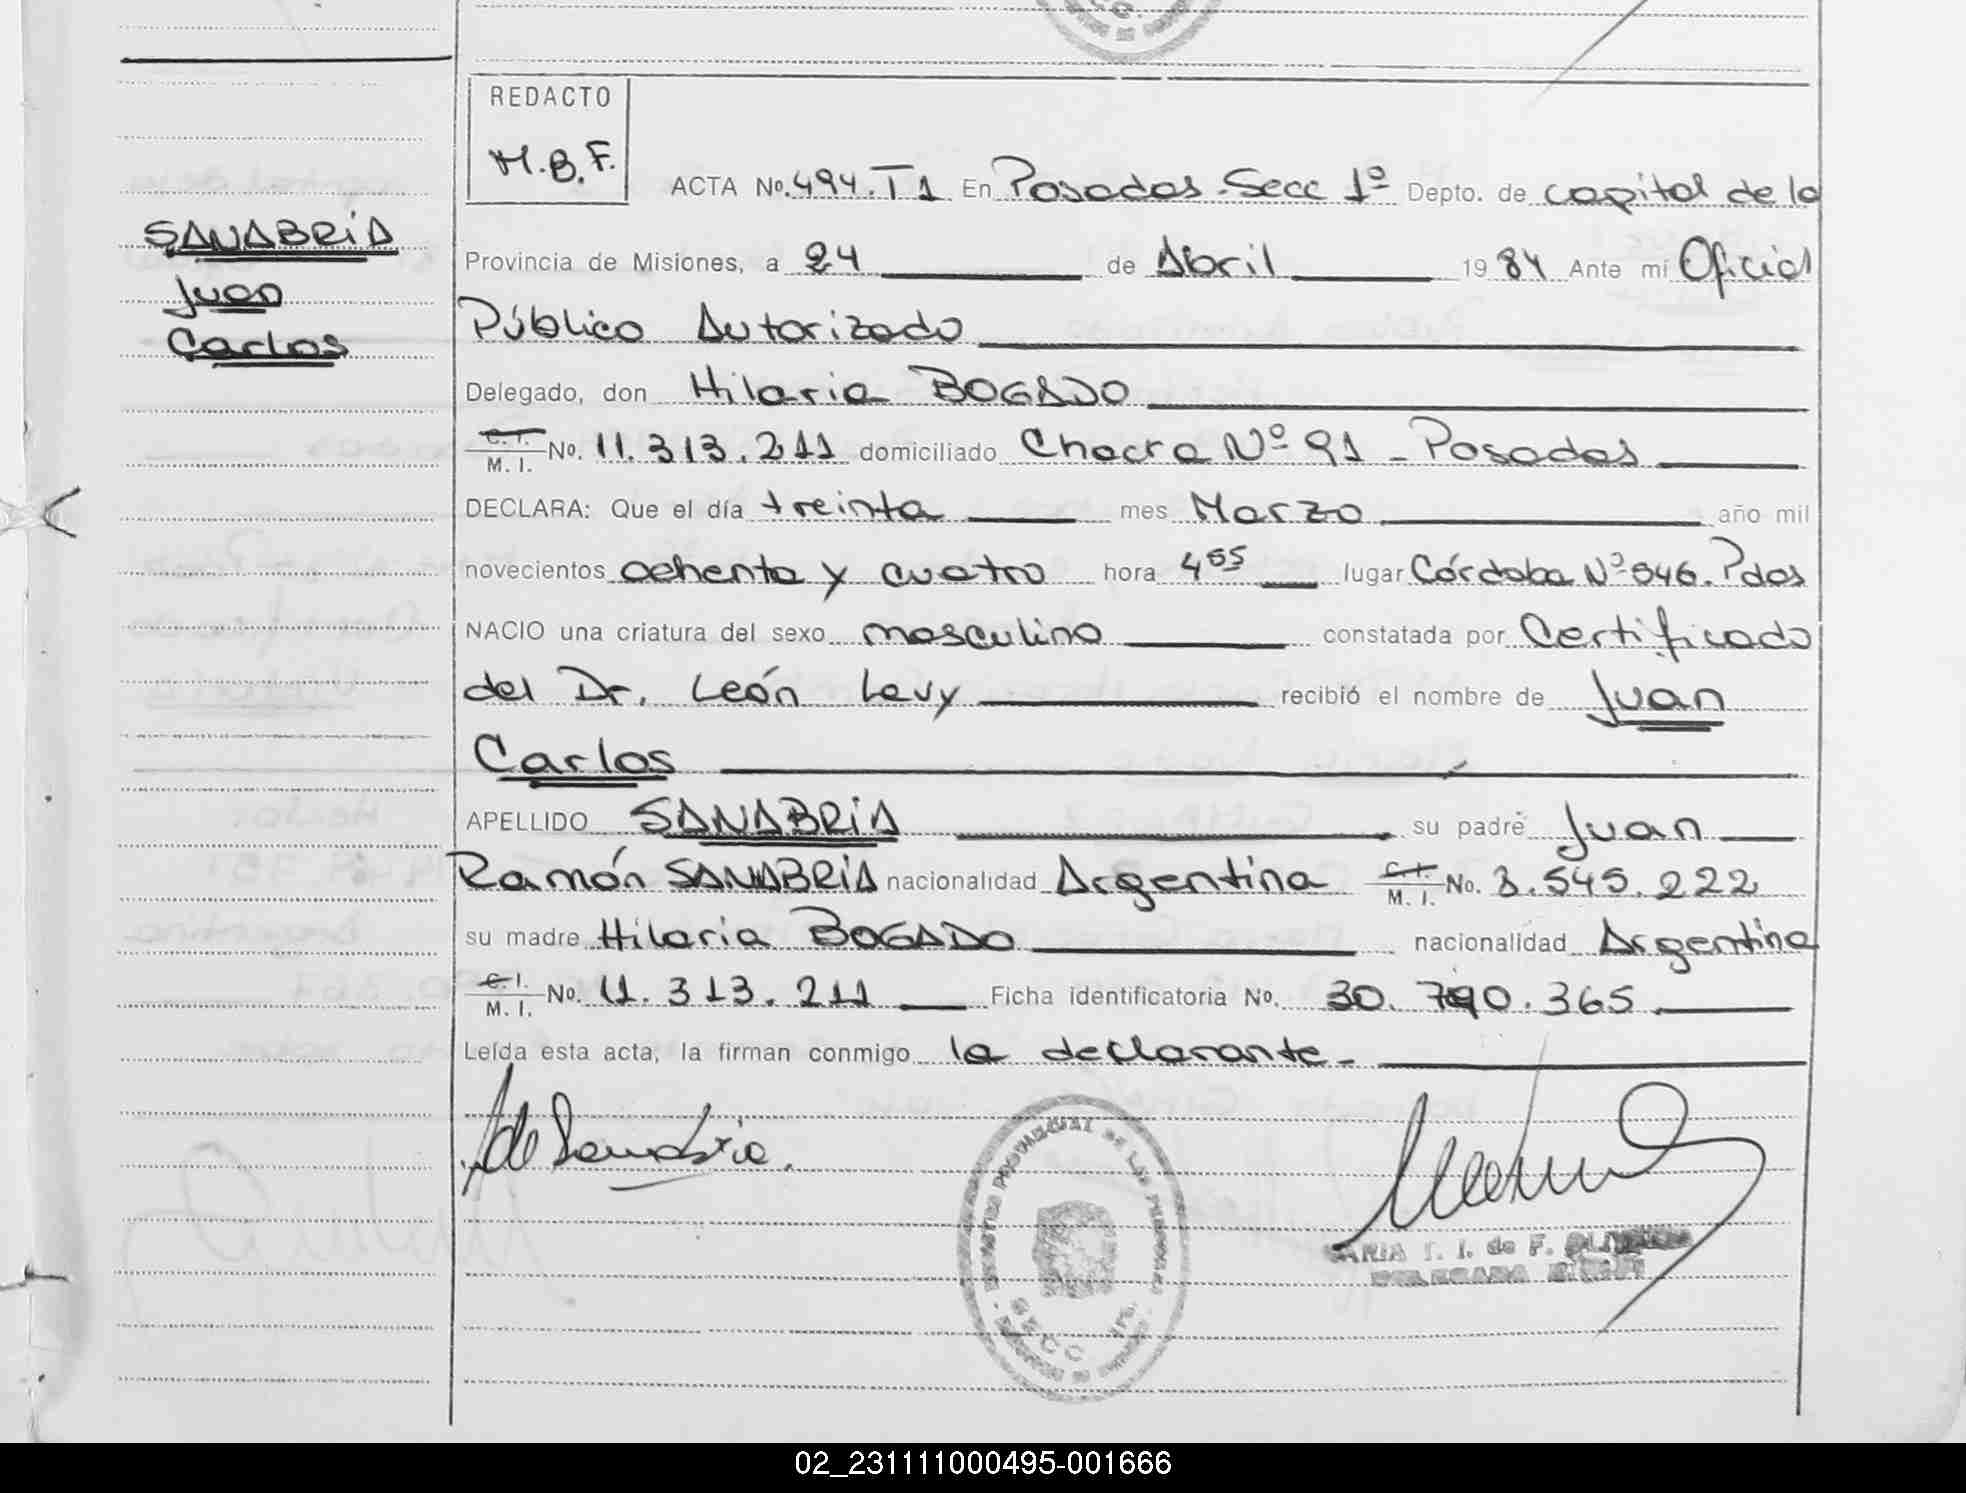 REDACTO
M.B.F.
ACTA No. 494. T1 En Posadas. Secc 1º Depto. de capital de la
SANABRIA
Juan
Carlos
Provincia de Misiones, a 24 de Abril 1984 Ante mí Oficial
Público Autorizado
Delegado, don Hilaria BOGADO
C. I. M. I. No. 11.313.211 domiciliado Chacra Nº 91 - Posadas
DECLARA: Que el día treinta mes Marzo año mil
novecientos ochenta y cuatro hora 4 55 lugar Córdoba Nº 546. Pdas
NACIO una criatura del sexo masculino constatada por Certificado
del Dr. León Levy recibió el nombre de Juan
Carlos
APELLIDO SANABRIA su padre Juan
Ramón SANABRIA nacionalidad Argentina C. I. M. I. No. 8.545.222
su madre Hilaria BOGADO nacionalidad Argentina
C. I. M. I. No. 11.313.211 Ficha identificatoria No. 30.790.365
Leída esta acta, la firman conmigo la declarante.-
de Sanabria.
DE LAS
SECC 1ª
MARIA T. I. de F.
DELEGADA
02_231111000495-001666